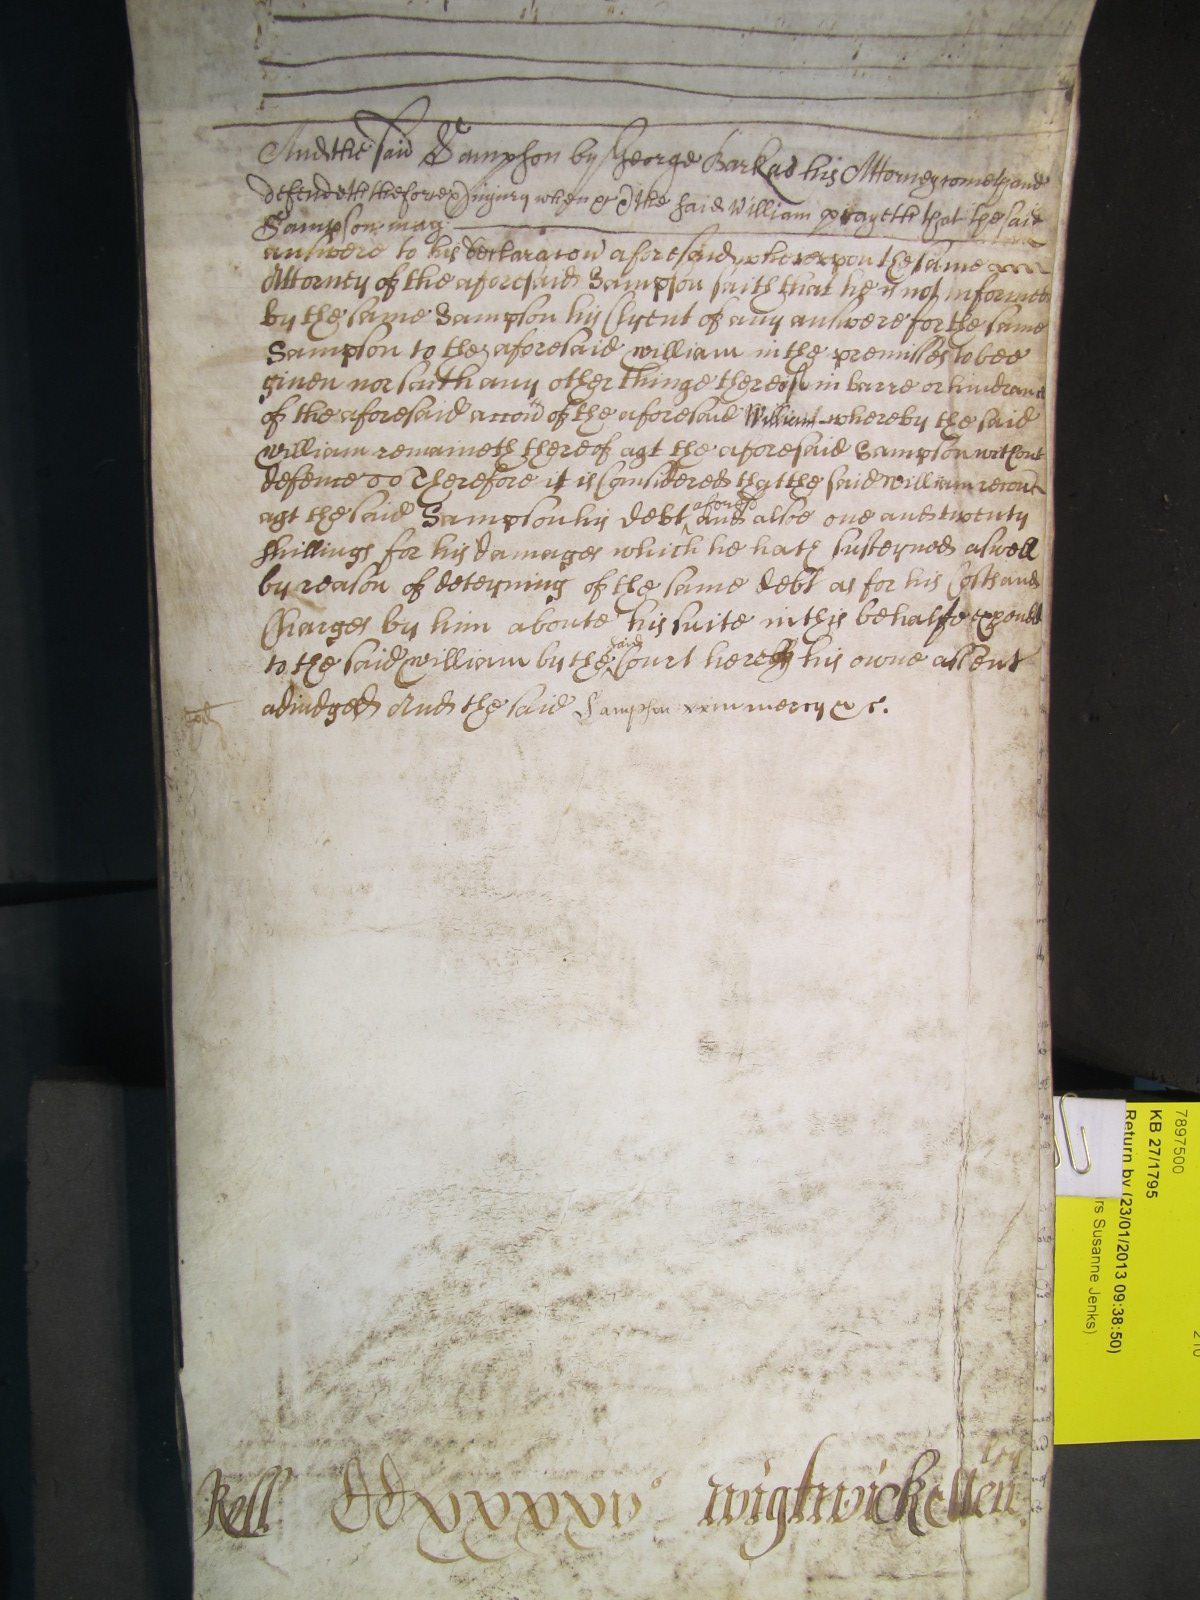 And the said Sampson by George Barkas his Attorney cometh and
defendeth the force & iniury when &c And the said William prayeth that the said
Sampson may
answere to his declaracon aforesaid whereupon the same
Attorney of the aforesaid Sampson saith that he is not informed
by the same Sampson his Clyent of any answere for the same
Sampson to the aforesaid William in the premisses to bee
given nor saith any other thinge thereof in barre or hindrance
of the aforesaid accon of the aforesaid William whereby the said
William remaineth thereof agt the aforesaid Sampson without
defence &c Therefore it is Considered that the said William recover
agt the said Sampson his debt aforesd And alsoe one and twenty
shillings for his damages which he hath susteyned aswell
by reason of deteyning of the same debt as for his Costs and
Charges by him aboute his suite in this behalfe expended
to the said William by the said Court here by his owne assent
adiudged And the said Sampson in mercy &c.
Roll
wightwick
7897500
KB 27/1795
Return by (23/01/2013 09:38:50)
rs Susanne Jenks)
210